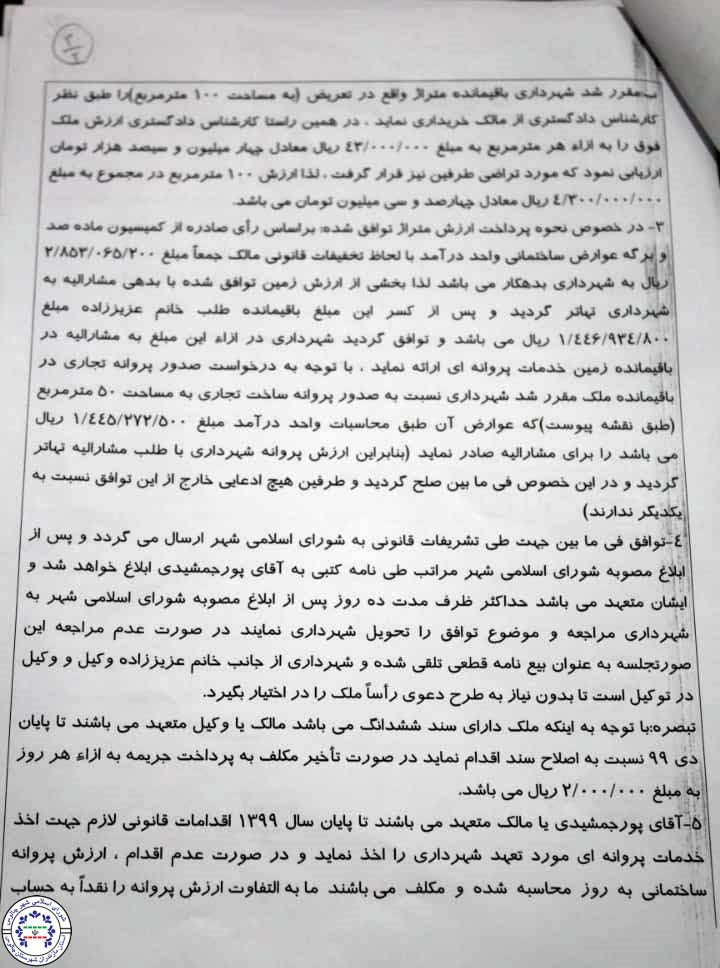 ۲
۲
ب-مقرر شد شهرداری باقیمانده متراژ واقع در تعریض (به مساحت ۱۰۰ مترمربع)را طبق نظر
کارشناس دادگستری از مالک خریداری نماید ، در همین راستا کارشناس دادگستری ارزش ملک
فوق را به ازاء هر مترمربع به مبلغ ۴۳/۰۰۰/۰۰۰ ریال معادل چهار میلیون و سیصد هزار تومان
ارزیابی نمود که مورد تراضی طرفین نیز قرار گرفت ، لذا ارزش ۱۰۰ مترمربع در مجموع به مبلغ
۴/۳۰۰/۰۰۰/۰۰۰ ریال معادل چهارصد و سی میلیون تومان می باشد.
۳- در خصوص نحوه پرداخت ارزش متراژ توافق شده: براساس رأی صادره از کمیسیون ماده صد
و برگه عوارض ساختمانی واحد درآمد با لحاظ تخفیفات قانونی مالک جمعاً مبلغ ۲/۸۵۳/۰۶۵/۲۰۰
ریال به شهرداری بدهکار می باشد لذا بخشی از ارزش زمین توافق شده با بدهی مشارالیه به
شهرداری تهاتر گردید و پس از کسر این مبلغ باقیمانده طلب خانم عزیززاده مبلغ
۱/۴۴۶/۹۳۴/۸۰۰ ریال می باشد و توافق گردید شهرداری در ازاء این مبلغ به مشارالیه در
باقیمانده زمین خدمات پروانه ای ارائه نماید ، با توجه به درخواست صدور پروانه تجاری در
باقیمانده ملک مقرر شد شهرداری نسبت به صدور پروانه ساخت تجاری به مساحت ۵۰ مترمربع
(طبق نقشه پیوست)که عوارض آن طبق محاسبات واحد درآمد مبلغ ۱/۴۴۵/۲۷۲/۵۰۰ ریال
می باشد را برای مشارالیه صادر نماید (بنابراین ارزش پروانه شهرداری با طلب مشارالیه تهاتر
گردید و در این خصوص فی ما بین صلح گردید و طرفین هیچ ادعایی خارج از این توافق نسبت به
یکدیگر ندارند)
۴-توافق فی ما بین جهت طی تشریفات قانونی به شورای اسلامی شهر ارسال می گردد و پس از
ابلاغ مصوبه شورای اسلامی شهر مراتب طی نامه کتبی به آقای پورجمشیدی ابلاغ خواهد شد و
ایشان متعهد می باشد حداکثر ظرف مدت ده روز پس از ابلاغ مصوبه شورای اسلامی شهر به
شهرداری مراجعه و موضوع توافق را تحویل شهرداری نمایند در صورت عدم مراجعه این
صورتجلسه به عنوان بیع نامه قطعی تلقی شده و شهرداری از جانب خانم عزیززاده وکیل و وکیل
در توکیل است تا بدون نیاز به طرح دعوی رأساً ملک را در اختیار بگیرد.
تبصره:با توجه به اینکه ملک دارای سند ششدانگ می باشد مالک یا وکیل متعهد می باشند تا پایان
دی ۹۹ نسبت به اصلاح سند اقدام نماید در صورت تأخیر مکلف به پرداخت جریمه به ازاء هر روز
به مبلغ ۲/۰۰۰/۰۰۰ ریال می باشد.
۵-آقای پورجمشیدی یا مالک متعهد می باشند تا پایان سال ۱۳۹۹ اقدامات قانونی لازم جهت اخذ
خدمات پروانه ای مورد تعهد شهرداری را اخذ نماید و در صورت عدم اقدام ، ارزش پروانه
ساختمانی به روز محاسبه شده و مکلف می باشند ما به التفاوت ارزش پروانه را نقداً به حساب
شورای اسلامی شهر چالوس
استان مازندران شهرستان چالوس